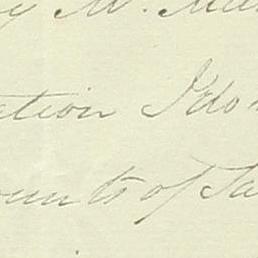 y W. M
ation I do
ounts of Sa